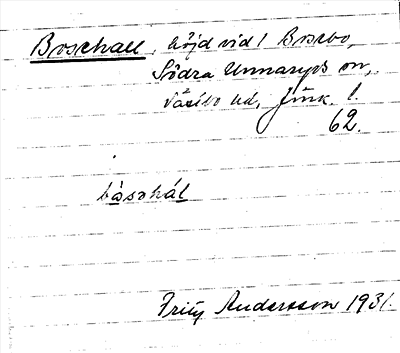 Boschall, höjd vid l Bosebo,
Södra Unnaryds sn,
Västbo hd, Jönk. l.
62.
bòsɔhál
Fritz Andersson 1931.